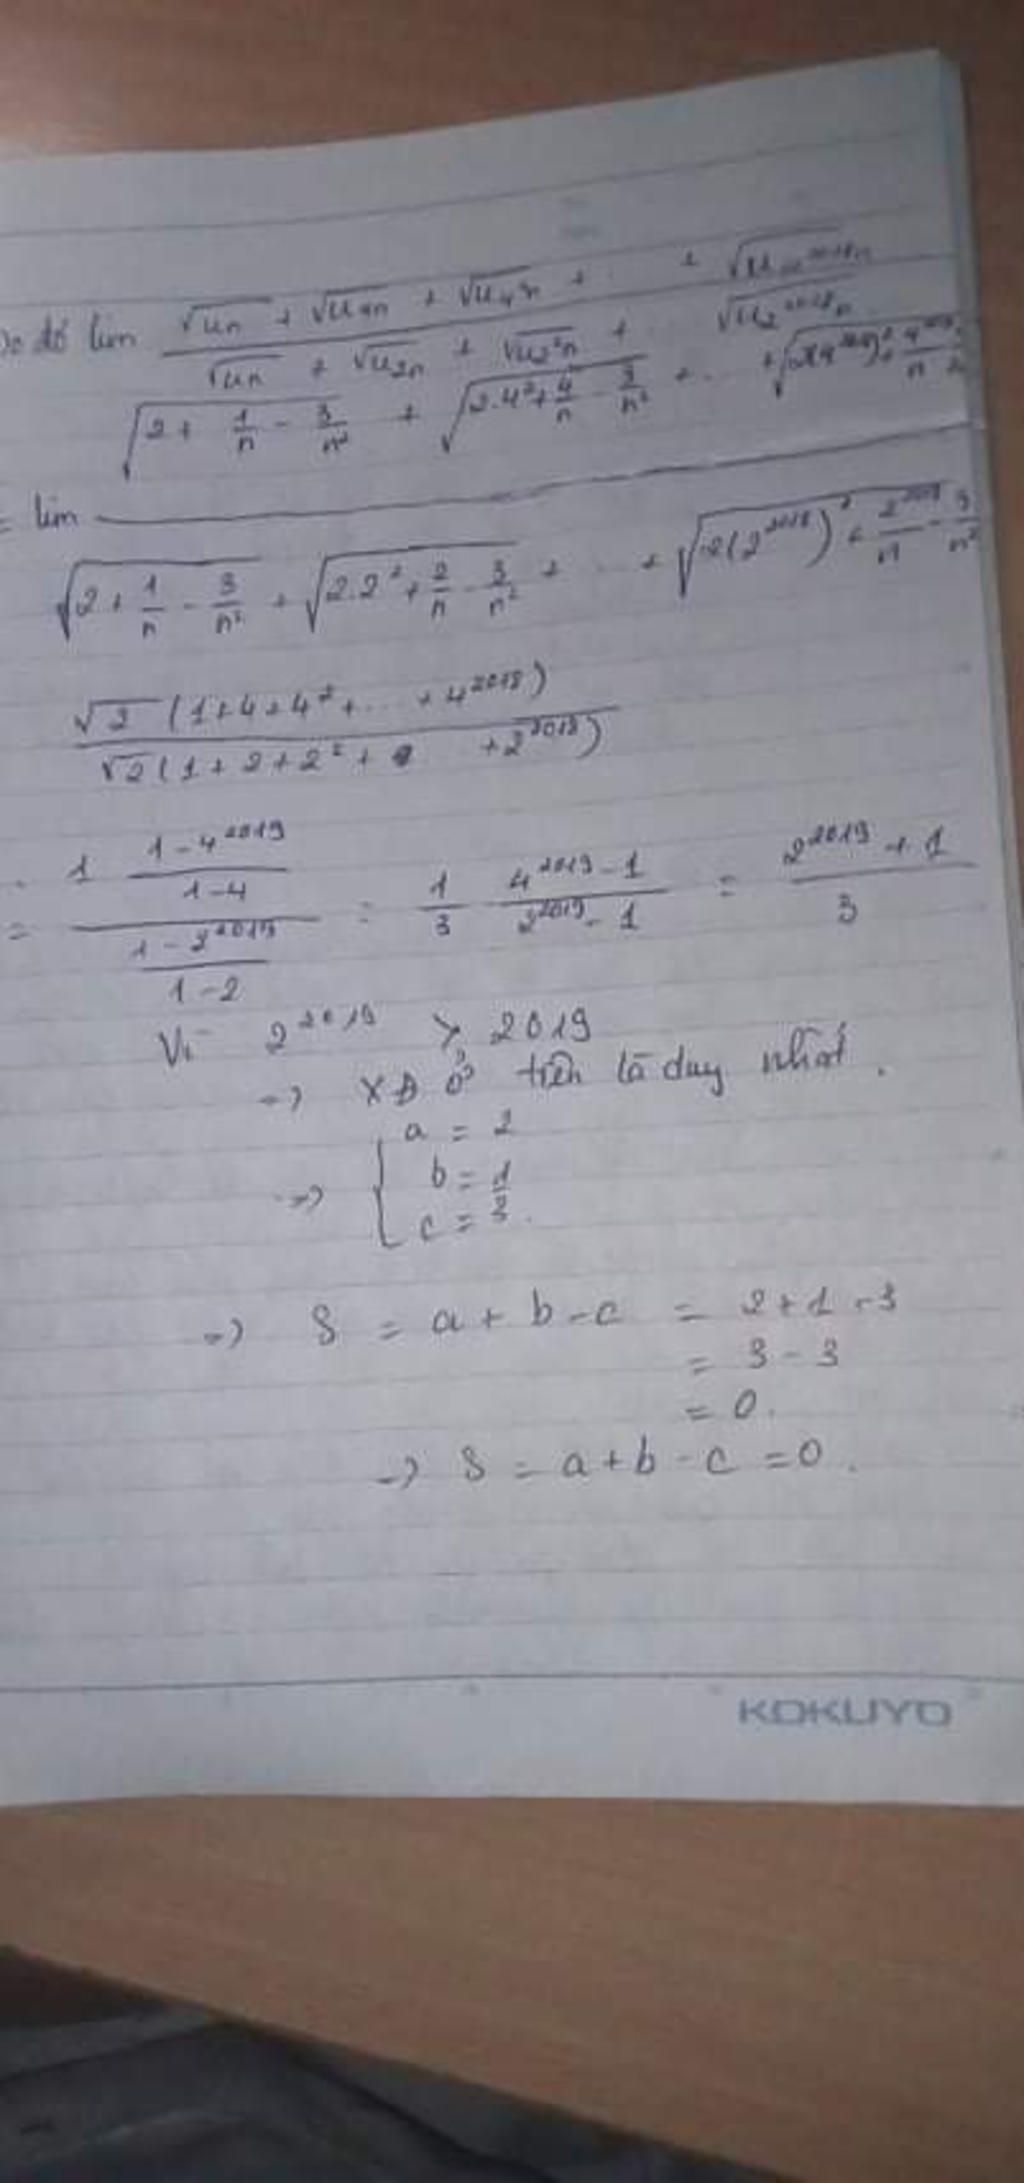 Do đó lim (√u_n + √u_4n + √u_4²n + ... + √u_4^2018n) / (√u_n + √u_2n + √u_2²n + ... √u_2^2018n)
√(2 + 1/n - 3/n²) + √(2.4² + 4/n - 3/n²) + ... +
= lim
√(2 + 1/n - 3/n²) + √(2.2² + 2/n - 3/n²) + ... + √(2(2^2018)² + 2^2018/n - 3/n²)
√2 (1+4+4²+...+4^2018)
√2 (1+2+2²+ +2^2018)
= 1 ((1-4^2019)/(1-4)) / ((1-2^2019)/(1-2)) = 1/3 (4^2019-1)/(2^2019-1) = (2^2019+1)/3
Vì 2^2019 > 2019
→ XĐ ở trên là duy nhất.
a = 2
⇒ { b = 1
c = 3.
⇒ S = a + b - c = 2+1-3
= 3 - 3
= 0.
→ S = a+b-c = 0.
KOKUYO